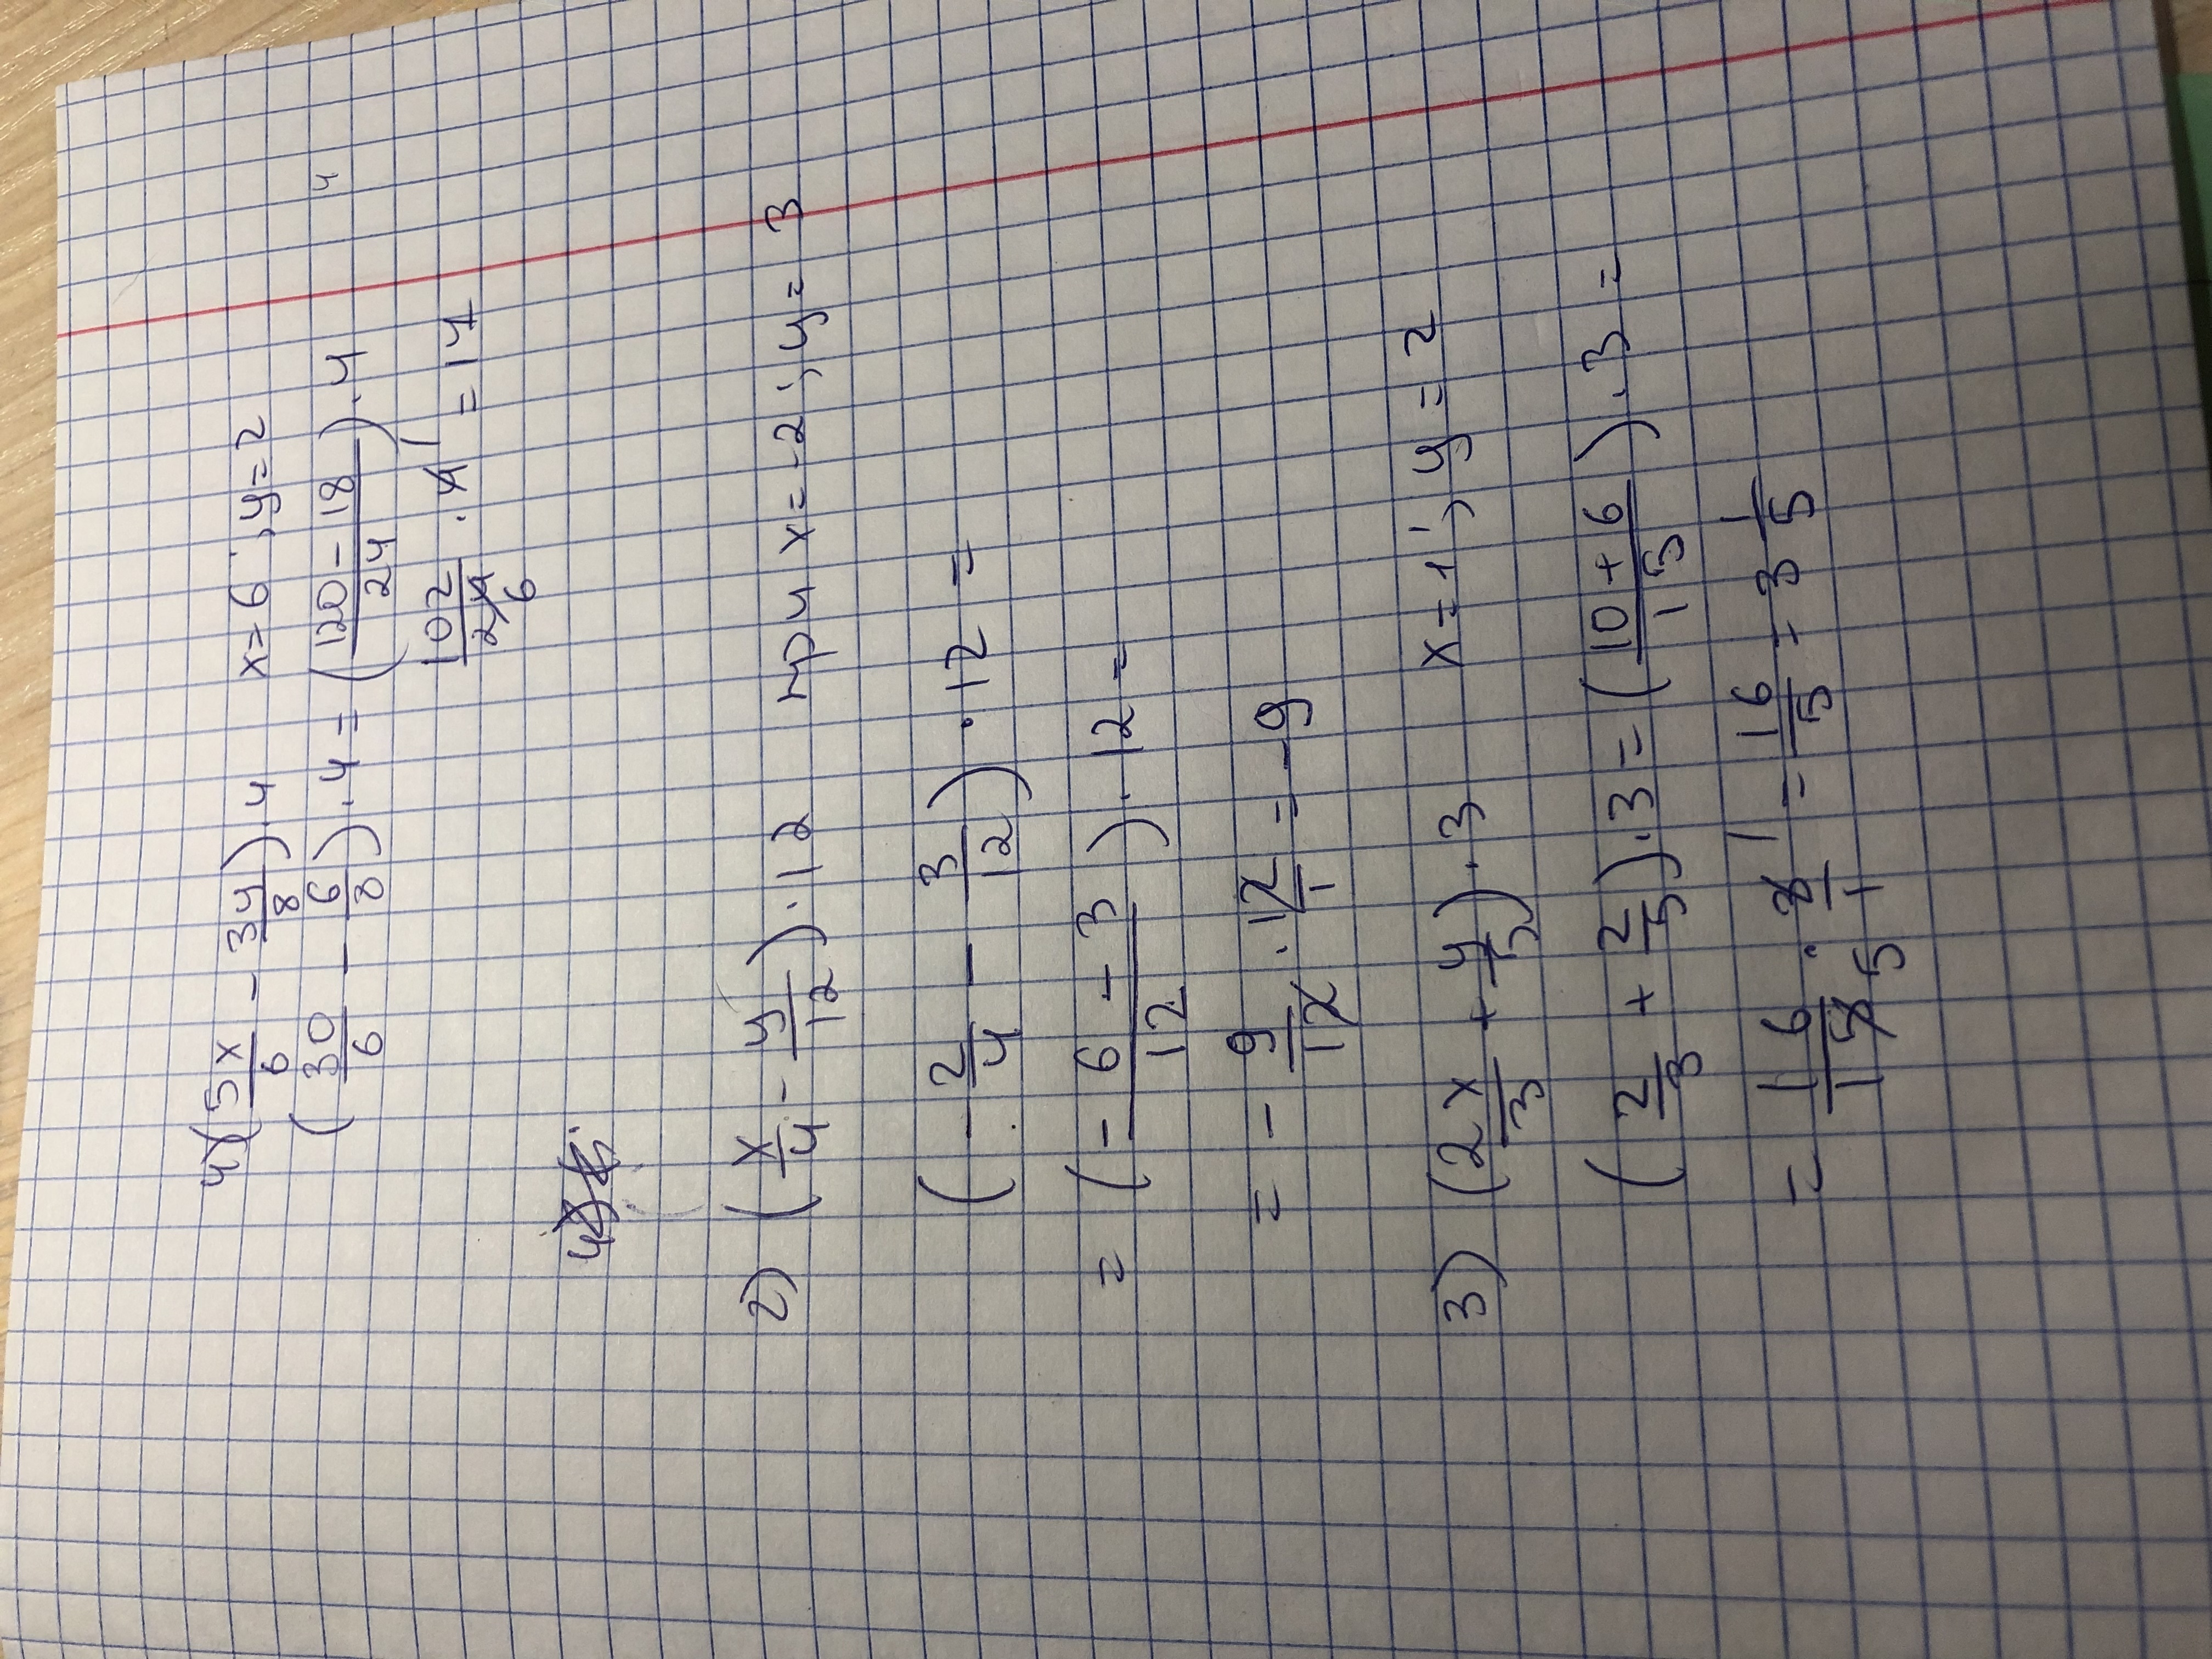 4) (5x/6 - 3y/8) · 4 x = 6 ; y = 2
(30/6 - 6/8) · 4 = (120 - 18/24) · 4
102/24 · 4 = 17
6 1
2) (x/4 - y/12) · 12 при x = -2 ; y = 3
(-2/4 - 3/12) · 12 =
= (-6 - 3/12) · 12 =
= -9/12 · 12/1 = -9
3) (2x/3 + y/5) · 3 x = 1 ; y = 2
(2/3 + 2/5) · 3 = (10 + 6/15) · 3 =
= 16/15 · 3/1 = 16/5 = 3 1/5
5 1